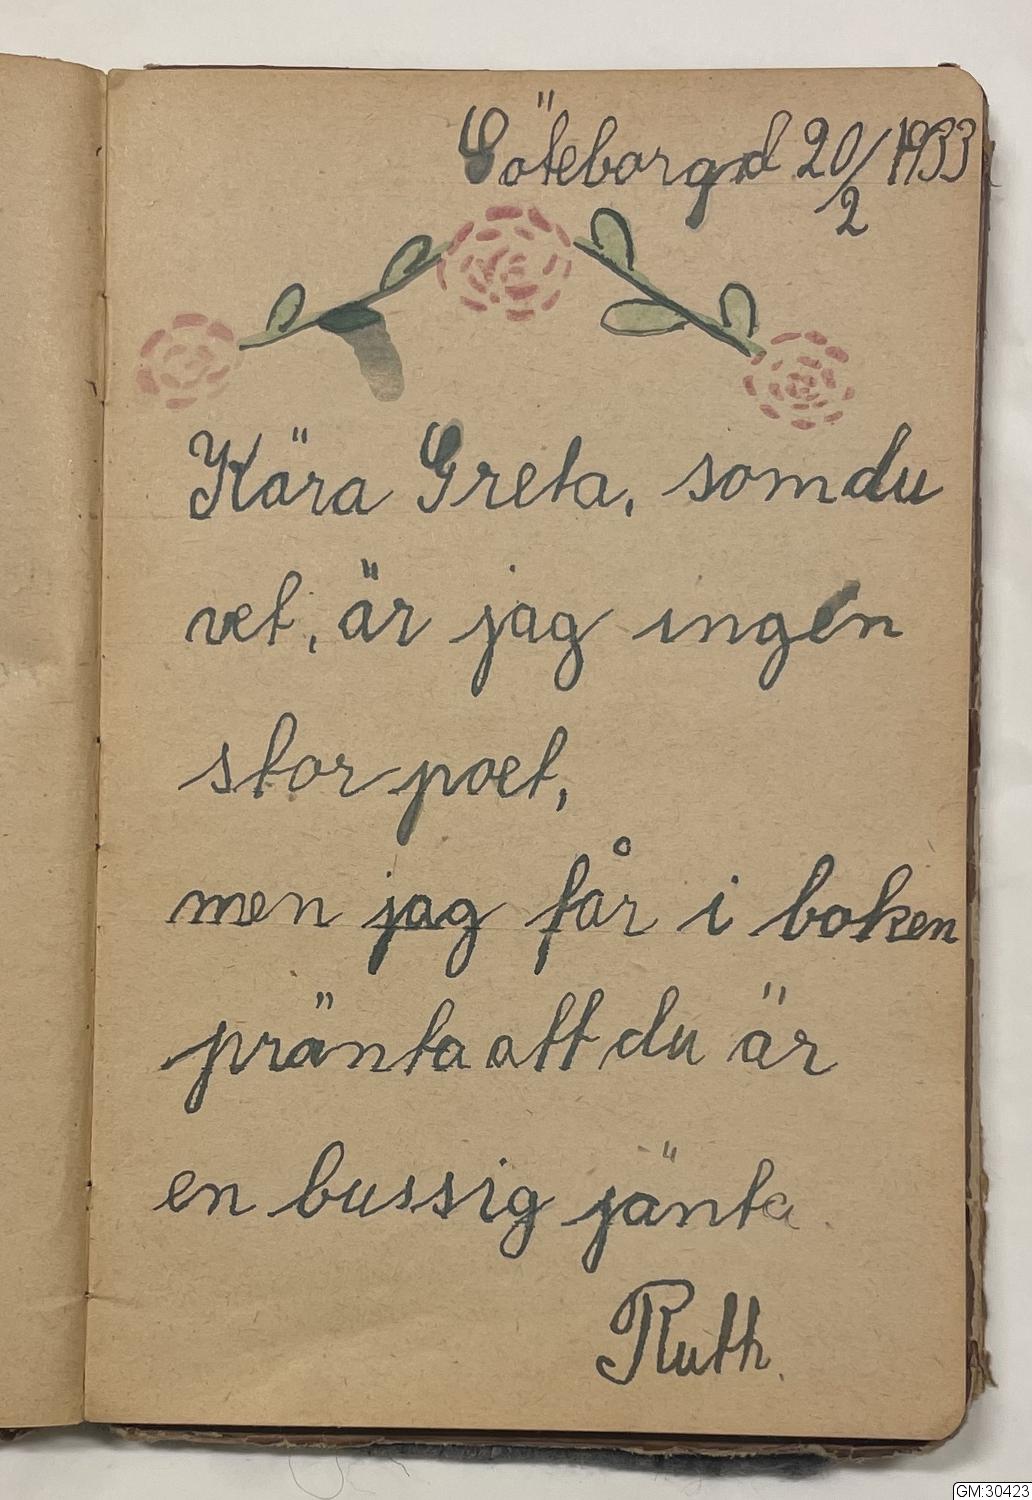 Göteborg d 20/2 1933
Kära Greta, som du
vet, är jag ingen
stor poet,
men jag får i boken
pränta att du är
en bussig jänta.
Ruth.
GM:30423